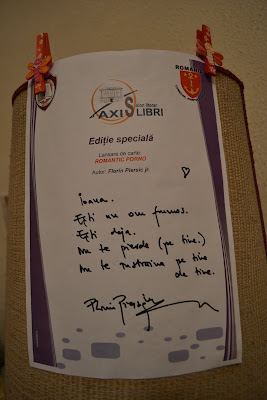 AXIS LIBRI
ROMÂNIA
Ediție specială
Lansare de carte:
ROMANTIC PORNO
Autor: Florin Piersic jr.
Ioana.
Ești un om frumos.
Ești deja.
Nu te pierde (pe tine.)
Nu te înstrăina pe tine
de tine.